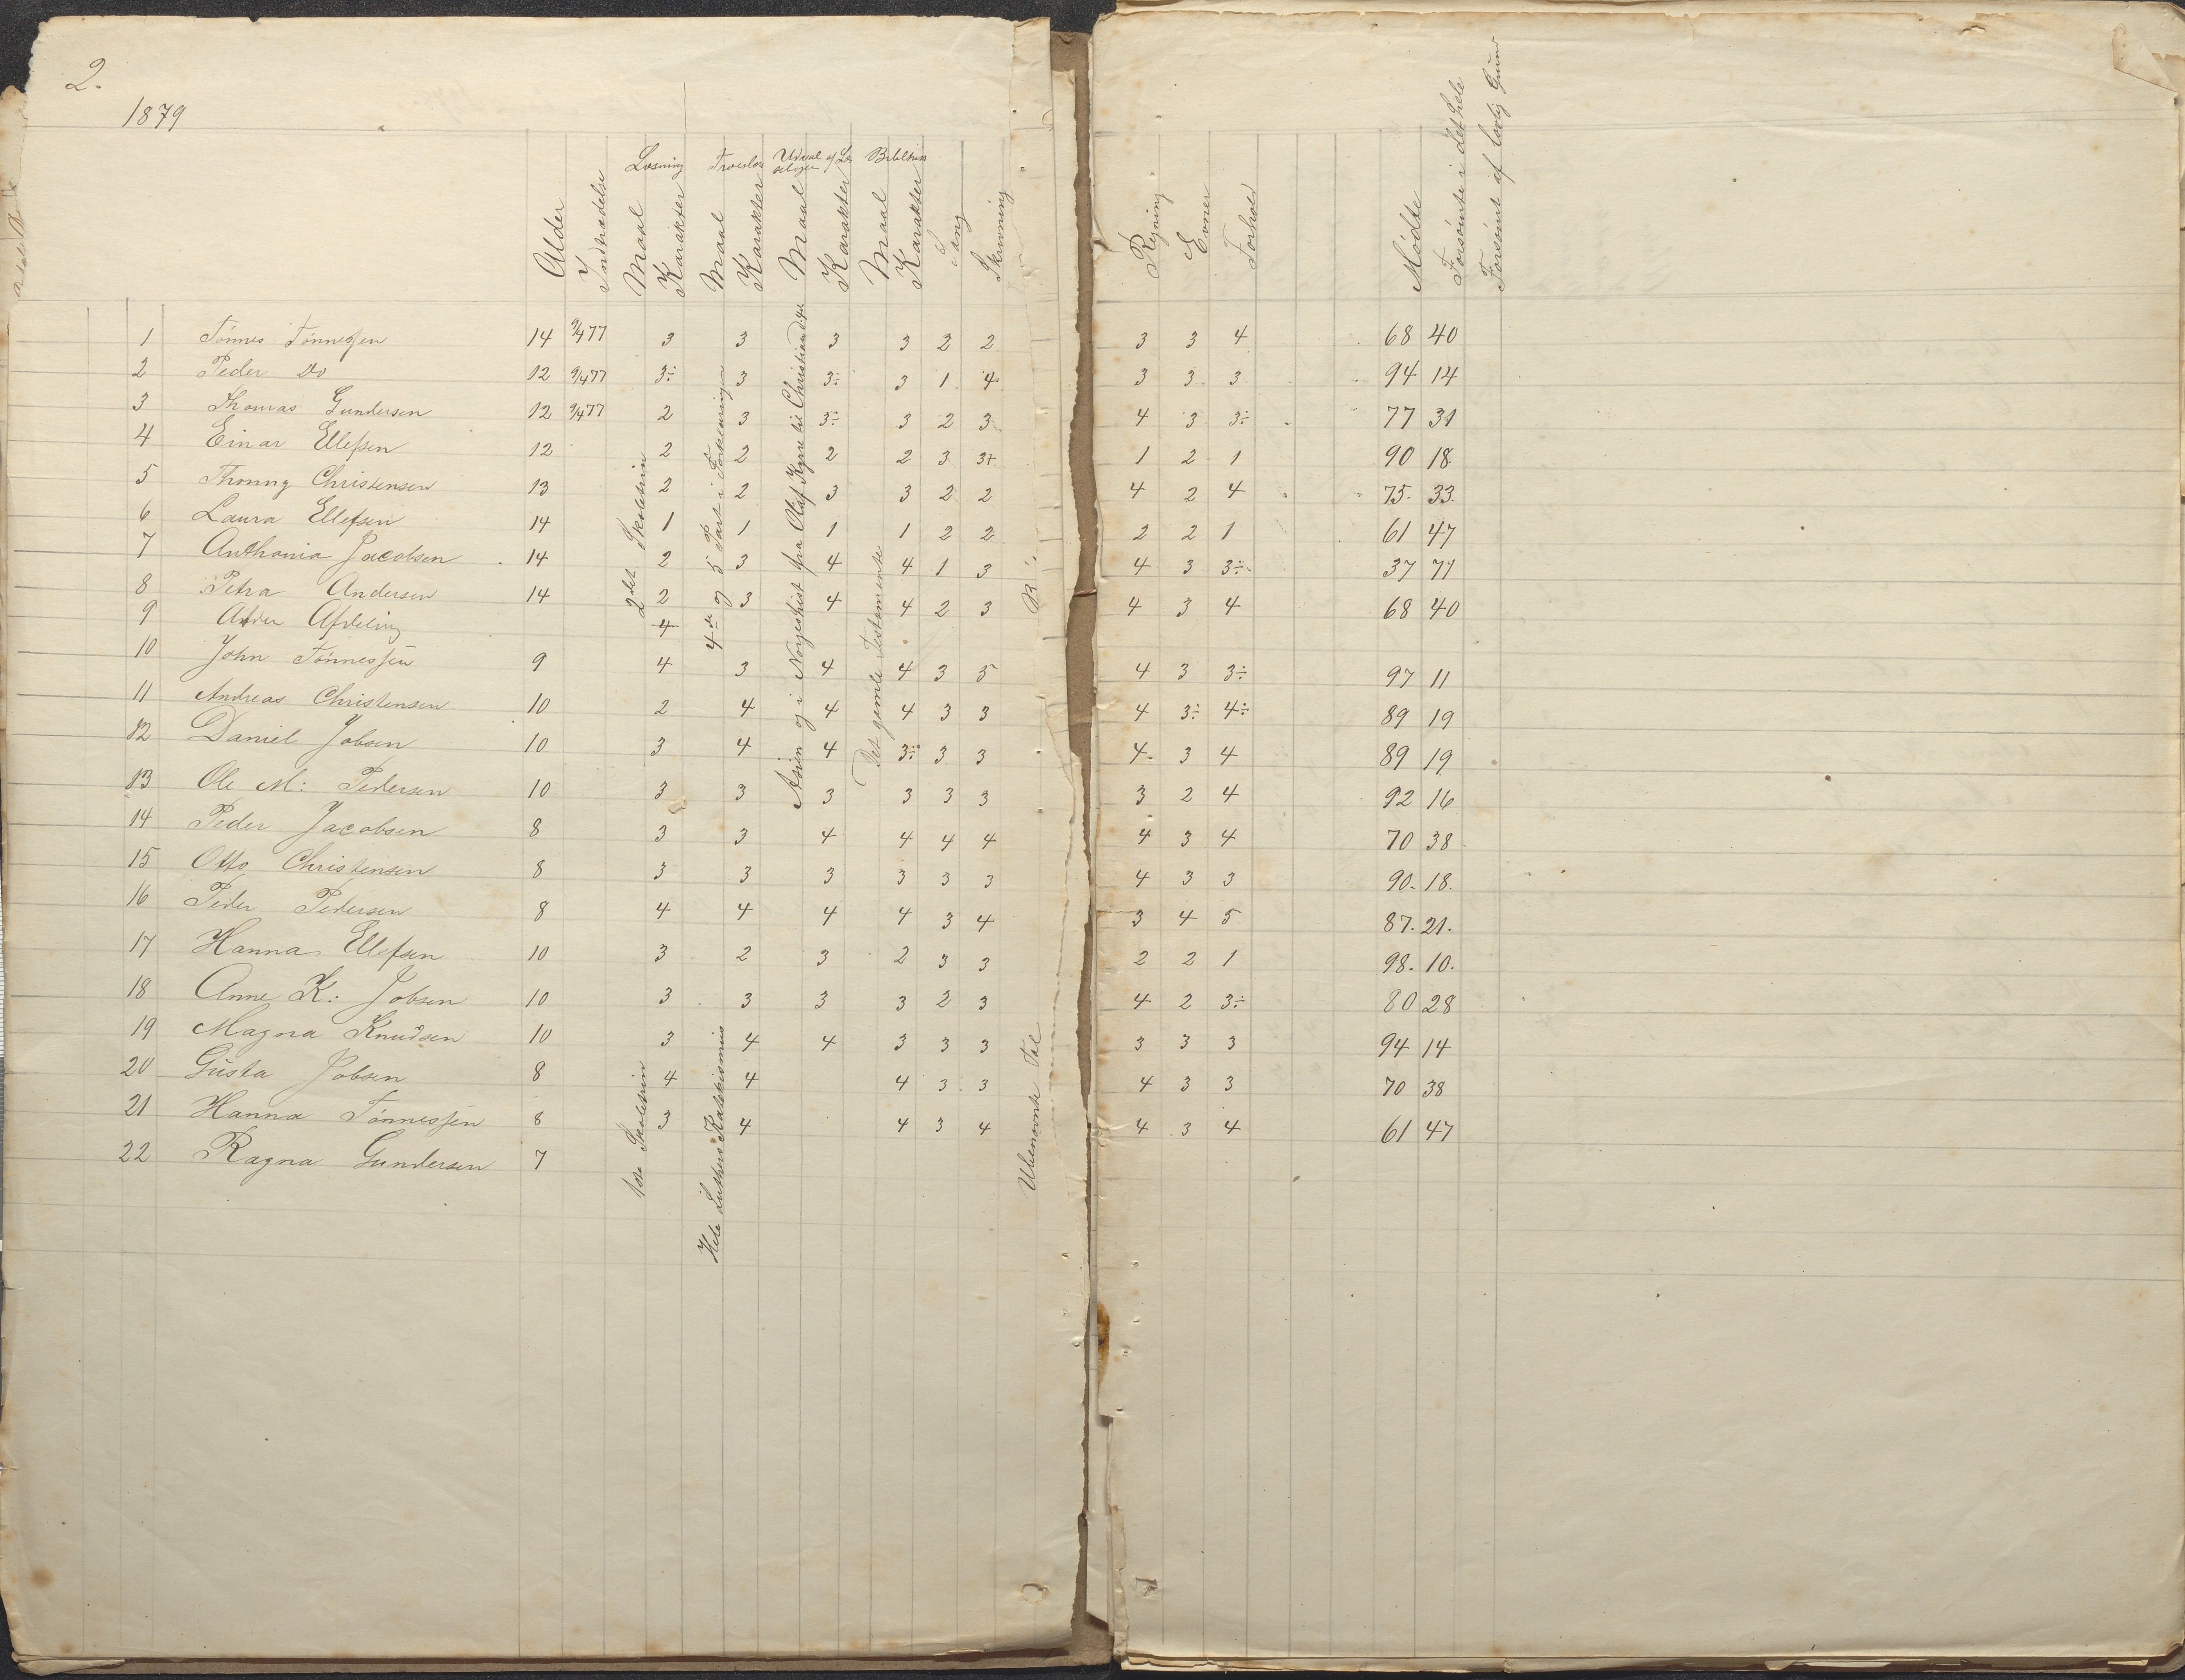 2.
1879
Læsning Troeslære Udval af Læ Bibelhist
Alder Indtrædelse Maal Karakter Maal Karakter Maal Karakter Maal Karakter Sang Skrivning Regning Evner Forhold Mødte Forsømte i det hele Forsømt af lovlig Grund
1 Tønnes Tønnessen 14 9/4 77 3 3 3 3 2 2 3 3 4 68 40
2 Peder Do 12 9/4 77 3÷ 3 3÷ 3 1 4 3 3 3 94 14
3 Thomas Gundersen 12 9/4 77 2 3 3÷ 3 2 3 4 3 3÷ 77 31
4 Einar Ellefsen 12 2 2 2 2 3 3+ 1 2 1 90 18
5 Thonny Christensen 13 2 2 3 3 2 2 4 2 4 75. 33.
6 Laura Ellefsen 14 1 1 1 1 2 2 2 2 1 61 47
7 Anthonia Jacobsen 14 2 3 4 4 1 3 4 3 3÷ 37 71
8 Petra Andersen 14 2 3 4 4 2 3 4 3 4 68 40
9 Anden Afdeling 4
10 John Tønnessen 9 4 3 4 4 3 5 4 3 3÷ 97 11
11 Andreas Christensen 10 2 4 4 4 3 3 4 3÷ 4÷ 89 19
12 Daniel Jobsen 10 3 4 4 3÷ 3 3 4 3 4 89 19
13 Ole M: Pedersen 10 3 3 3 3 3 3 3 2 4 92 16
14 Peder Jacobsen 8 3 3 4 4 4 4 4 3 4 70 38
15 Otto Christensen 8 3 3 3 3 3 3 4 3 3 90. 18.
16 Peder Pedersen 8 4 4 4 4 3 4 3 4 5 87. 21.
17 Hanna Ellefsen 10 3 2 3 2 3 3 2 2 1 98. 10.
18 Anne K: Jobsen 10 3 3 3 3 2 3 4 2 3÷ 80 28
19 Magna Knudsen 10 3 4 4 3 3 3 3 3 3 94 14
20 Gusta Jobsen 8 4 4 4 3 3 4 3 3 70 38
21 Hanna Tønnessen 8 3 4 4 3 4 4 3 4 61 47
22 Ragna Gundersen 7
2det Skoletrin
4de og 5 Part i Forklaringen
Asien og i Norgeshist fra Olaf Kyrre til Christian d 4de
Det gamle Testamente
1ste Skoletrin
Hele Luthers Katekismus
Ubenævnte Tal